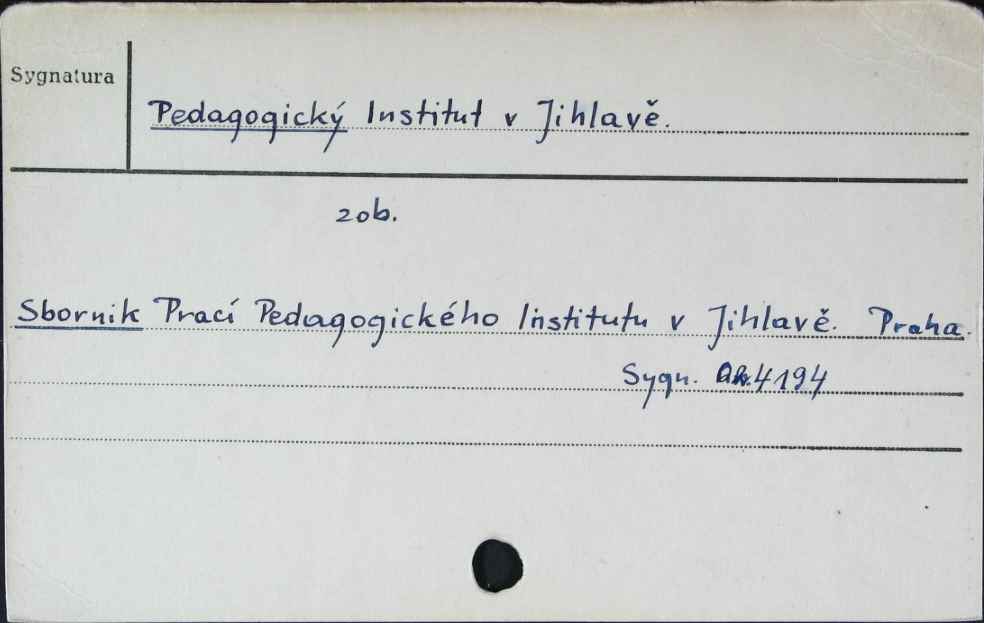 Sygnatura
Pedagogický Institut v Jihlavě.
zob.
Sbornik Prací Pedagogického Institutu v Jihlavě. Praha.
Sygn. 4194